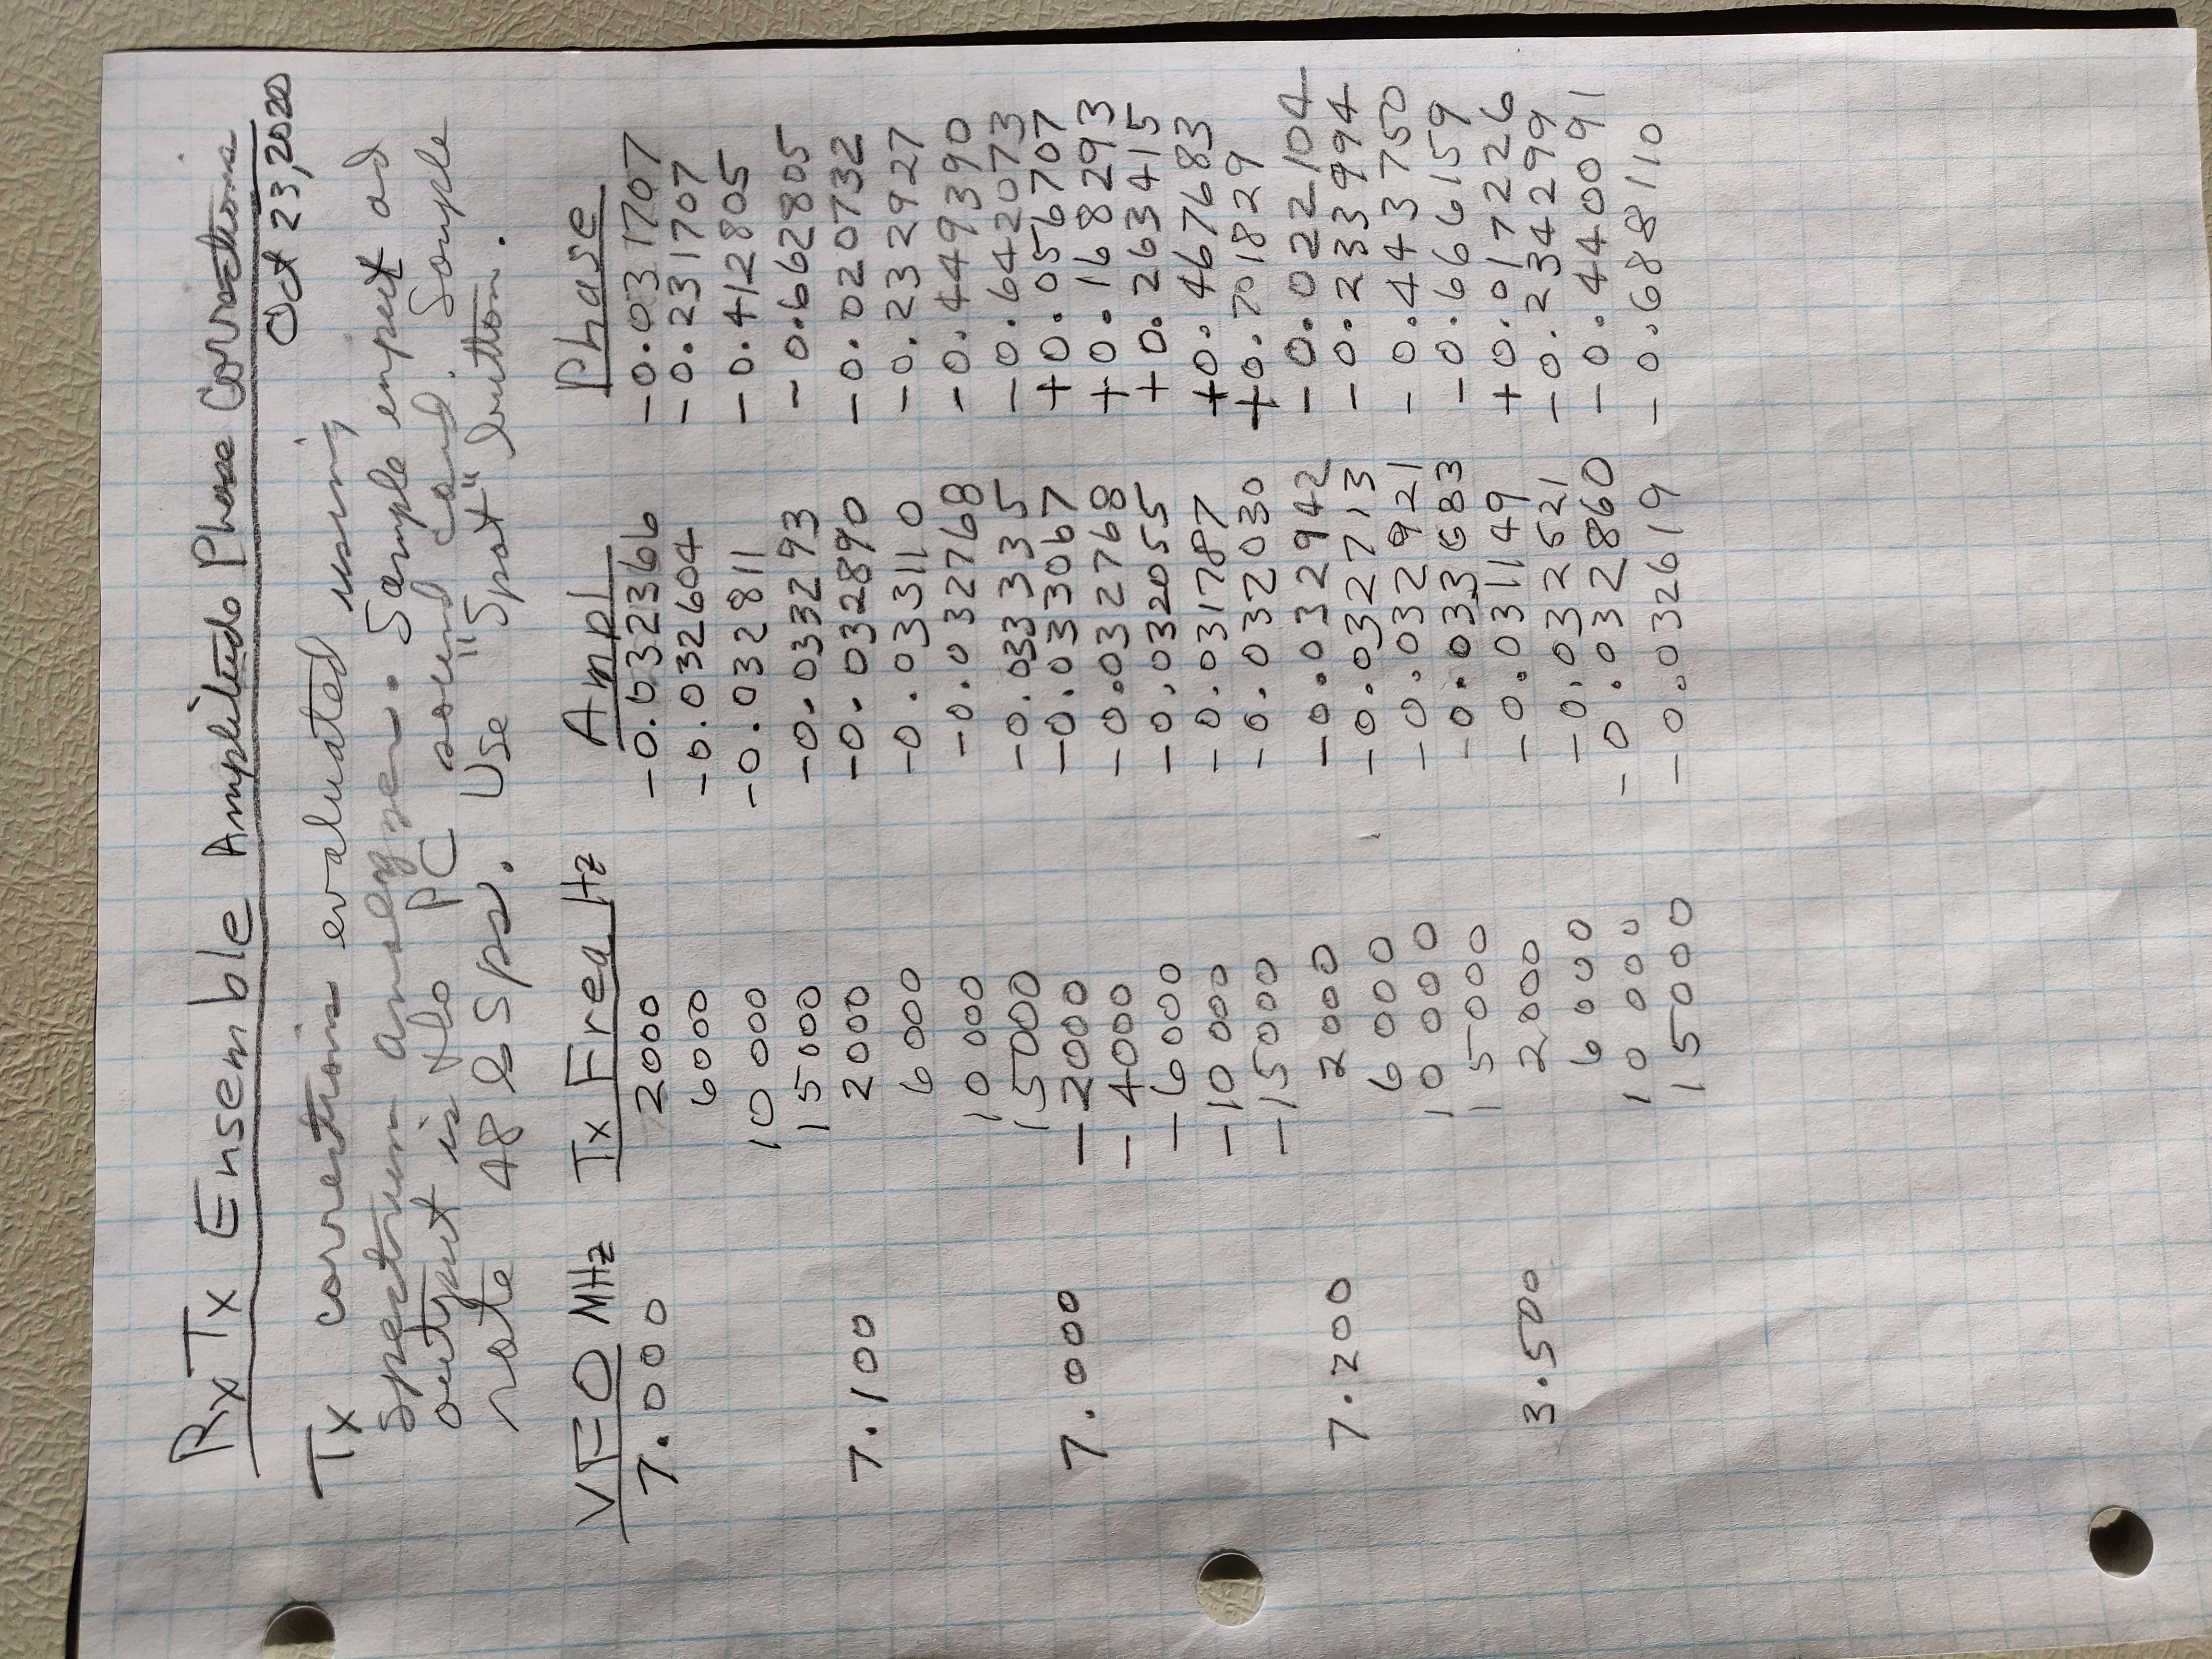 RxTx Ensemble Amplitude Phase Corrections
Oct 23, 2020
Tx corrections evaluated using
spectrum analyzer. Sample input and
output is the PC sound card. Sample
rate 48 kSps. Use "Spot" button.
VFO MHz Tx Freq Hz Ampl Phase
7.000 2000 -0.032366 -0.031707
6000 -0.032604 -0.231707
10000 -0.032811 -0.412805
15000 -0.033293 -0.662805
7.100 2000 -0.032890 -0.020732
6000 -0.033110 -0.232927
10000 -0.032768 -0.449390
15000 -0.033335 -0.642073
7.000 -2000 -0.033067 +0.056707
-4000 -0.032768 +0.168293
-6000 -0.032055 +0.263415
-10000 -0.031787 +0.467683
-15000 -0.032030 +0.701829
7.200 2000 -0.032942 -0.022104
6000 -0.032713 -0.233994
10000 -0.032921 -0.443750
15000 -0.666159
3.500 2000 -0.031149 +0.017226
6000 -0.032521 -0.234299
10000 -0.032860 -0.440091
15000 -0.032619 -0.688110